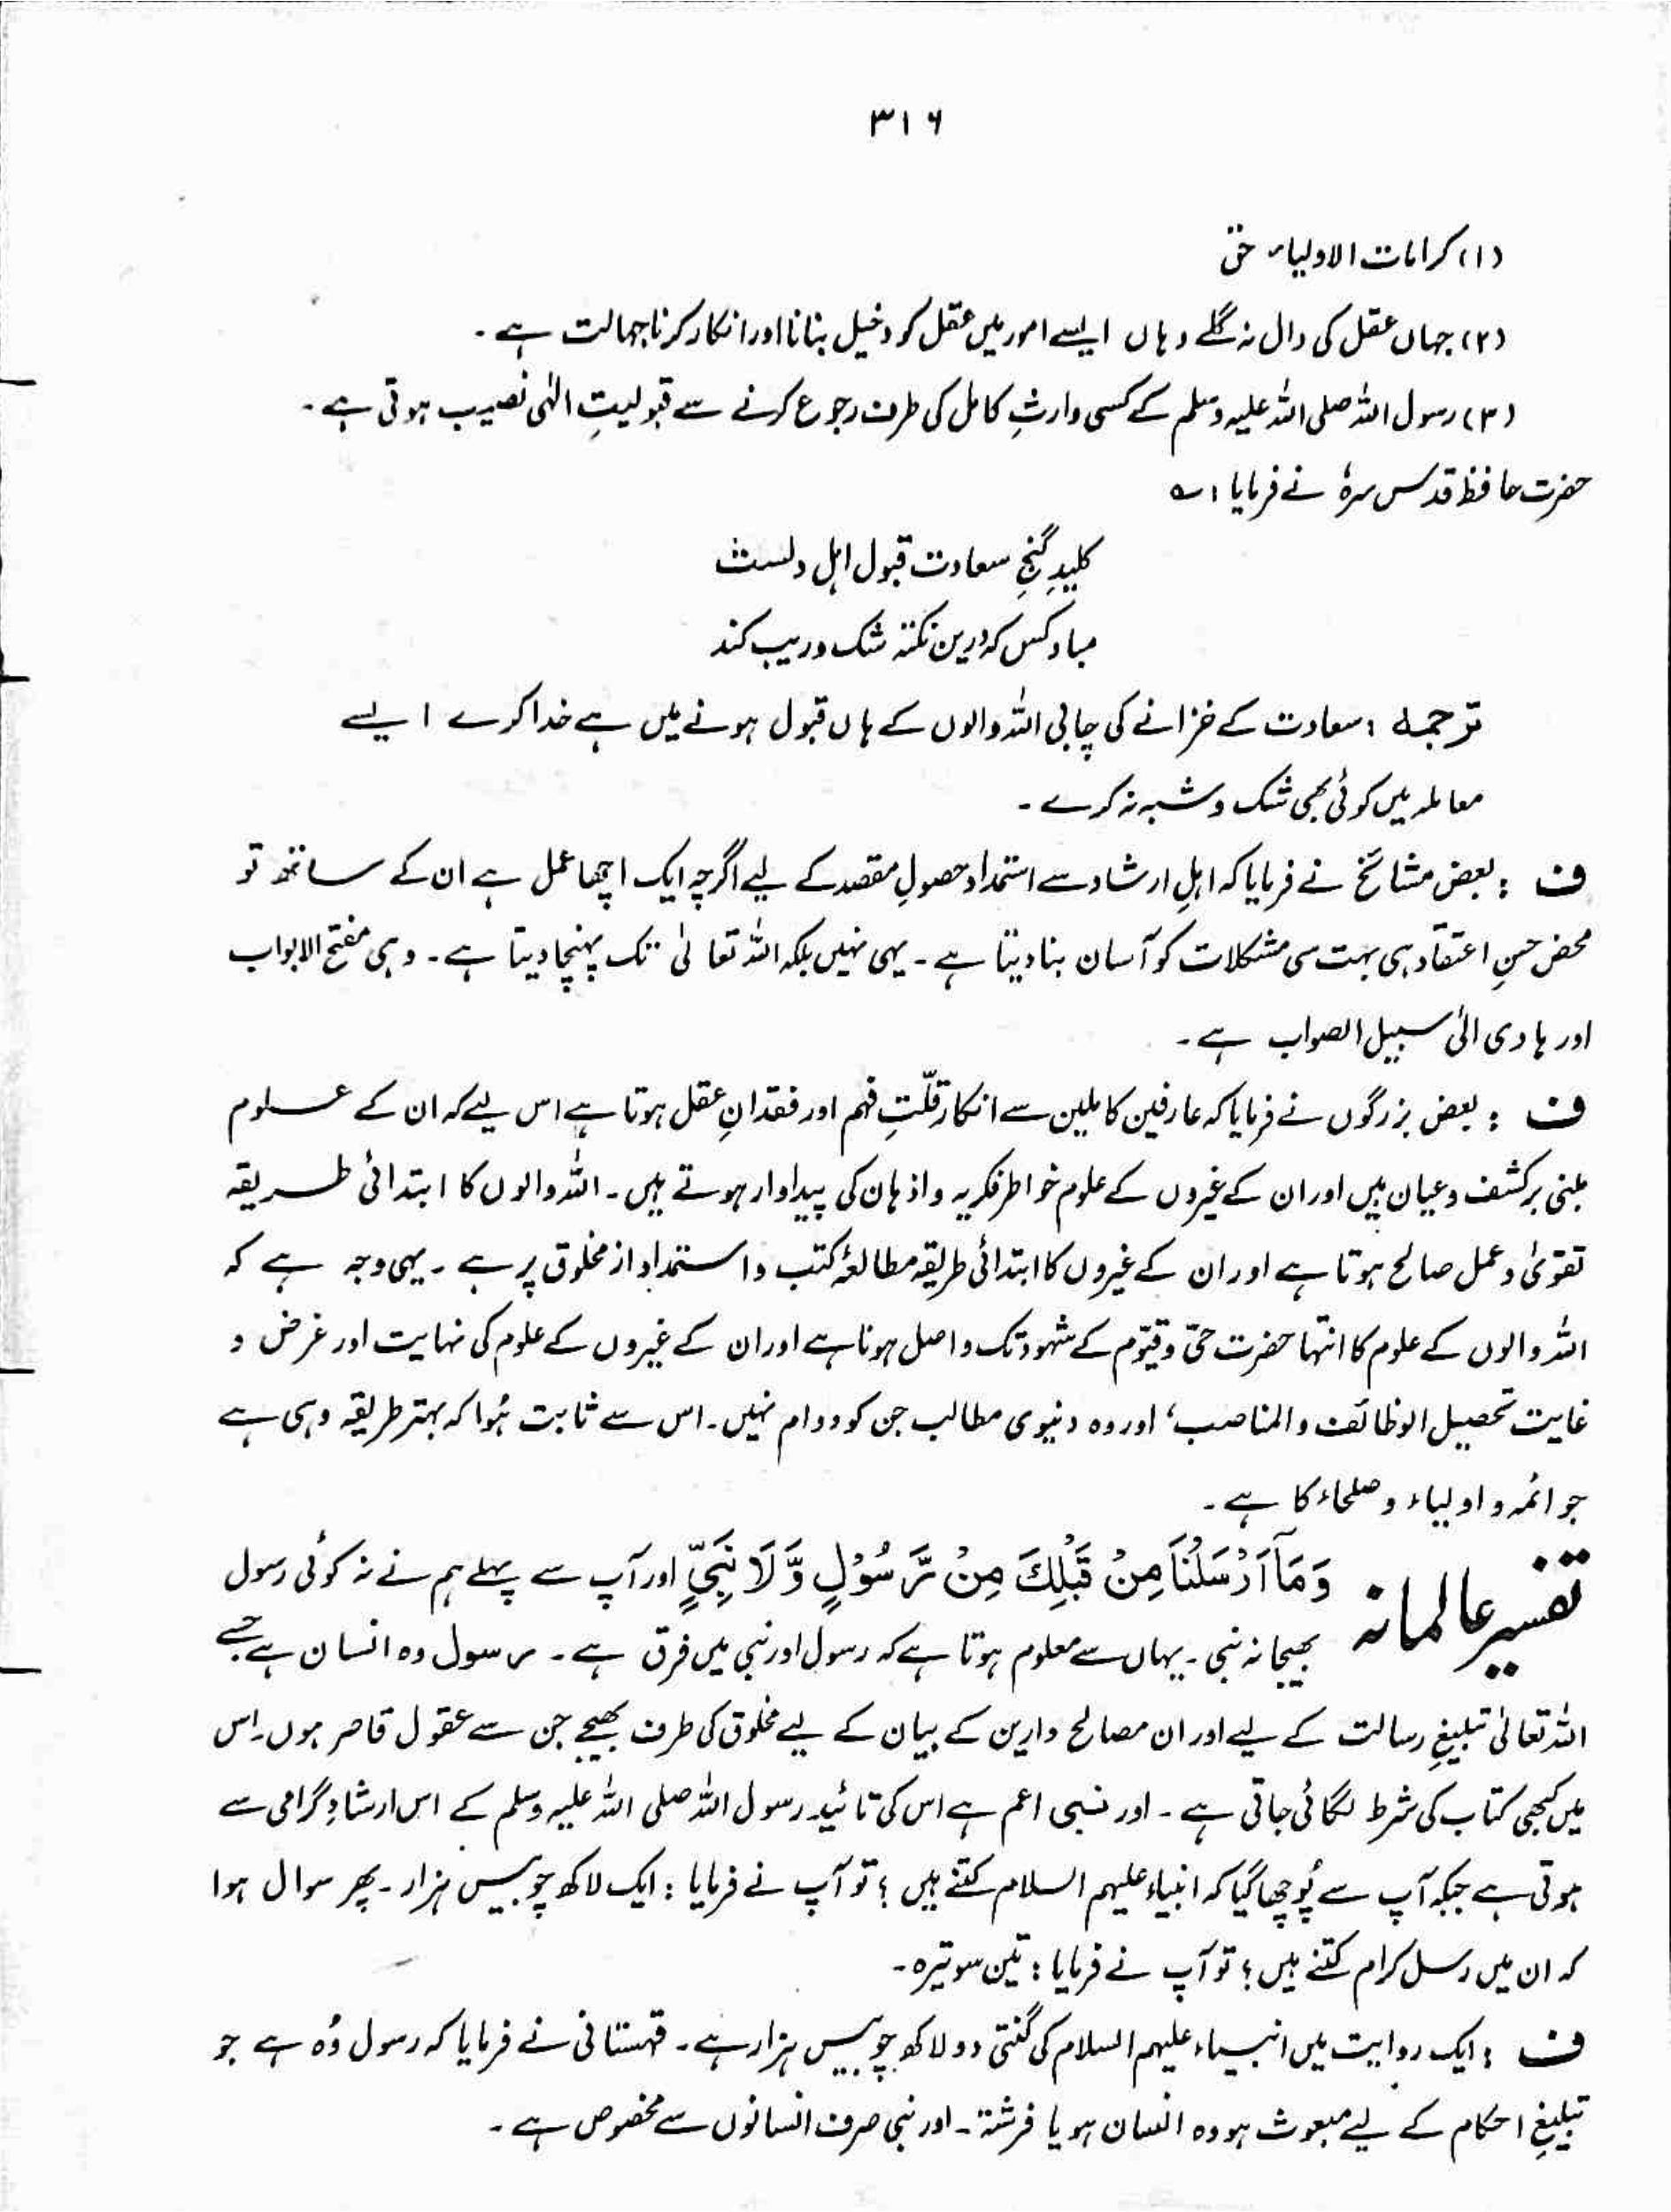 ۳۱۶
(۱) کرامات الاولیاء حق
(۲) جہاں عقل کی دال نہ گلے وہاں ایسے امور میں عقل کو دخیل بنانا اور انکار کرنا جہالت ہے ۔
(۳) رسول اللہ صلی اللہ علیہ وسلم کے کسی وارثِ کامل کی طرف رجوع کرنے سے قبولیتِ الٰہی نصیب ہوتی ہے ۔
حضرت حافظ قدس سرہٗ نے فرمایا : ؎
کلیدِ گنجِ سعادت قبول اہل دلست
مباد کس کہ درین نکتہ شک و ریب کند
ترجمہ : سعادت کے خزانے کی چابی اللہ والوں کے ہاں قبول ہونے میں ہے خدا کرے ایسے
معاملہ میں کوئی بھی شک و شبہ نہ کرے ۔
ف : بعض مشائخ نے فرمایا کہ اہلِ ارشاد سے استمداد حصولِ مقصد کے لیے اگرچہ ایک اچھا عمل ہے ان کے ساتھ تو
محض حسنِ اعتقاد ہی بہت سی مشکلات کو آسان بنا دیتا ہے ۔ یہی نہیں بلکہ اللہ تعالیٰ تک پہنچا دیتا ہے ۔ وہی مفتح الابواب
اور ہادی الیٰ سبیل الصواب ہے ۔
ف : بعض بزرگوں نے فرمایا کہ عارفین کاملین سے انکار قلّتِ فہم اور فقدانِ عقل ہوتا ہے اس لیے کہ ان کے علوم
مبنی بر کشف و عیان ہیں اور ان کے غیروں کے علوم خواطر فکریہ و اذہان کی پیداوار ہوتے ہیں ۔ اللہ والوں کا ابتدائی طریقہ
تقویٰ و عمل صالح ہوتا ہے اور ان کے غیروں کا ابتدائی طریقہ مطالعۂ کتب و استمداد از مخلوق پر ہے ۔ یہی وجہ ہے کہ
اللہ والوں کے علوم کا انتہا حضرت حیّ و قیّوم کے شہود تک واصل ہونا ہے اور ان کے غیروں کے علوم کی نہایت اور غرض و
غایت تحصیل الوظائف والمناصب ، اور وہ دنیوی مطالب جن کو دوام نہیں ۔ اس سے ثابت ہُوا کہ بہتر طریقہ وہی ہے
جو ائمہ و اولیاء و صلحاء کا ہے ۔
تفسیر عالمانہ وَمَآ اَرْسَلْنَا مِنْ قَبْلِكَ مِنْ رَّسُوْلٍ وَّلَا نَبِيٍّ اور آپ سے پہلے ہم نے نہ کوئی رسول
بھیجا نہ نبی ۔ یہاں سے معلوم ہوتا ہے کہ رسول اور نبی میں فرق ہے ۔ رسول وہ انسان ہے جسے
اللہ تعالیٰ تبلیغِ رسالت کے لیے اور ان مصالح دارین کے بیان کے لیے مخلوق کی طرف بھیجے جن سے عقول قاصر ہوں ۔ اس
میں کبھی کتاب کی شرط لگائی جاتی ہے ۔ اور نبی اعم ہے اس کی تائید رسول اللہ صلی اللہ علیہ وسلم کے اس ارشادِ گرامی سے
ہوتی ہے جبکہ آپ سے پُوچھا گیا کہ انبیاء علیہم السلام کتنے ہیں ؟ تو آپ نے فرمایا : ایک لاکھ چوبیس ہزار ۔ پھر سوال ہوا
کہ ان میں رسل کرام کتنے ہیں ؟ تو آپ نے فرمایا : تین سو تیرہ ۔
ف : ایک روایت میں انبیاء علیہم السلام کی گنتی دو لاکھ چوبیس ہزار ہے ۔ قہستانی نے فرمایا کہ رسول وُہ ہے جو
تبلیغِ احکام کے لیے مبعوث ہو وہ انسان ہو یا فرشتہ ۔ اور نبی صرف انسانوں سے مخصوص ہے ۔